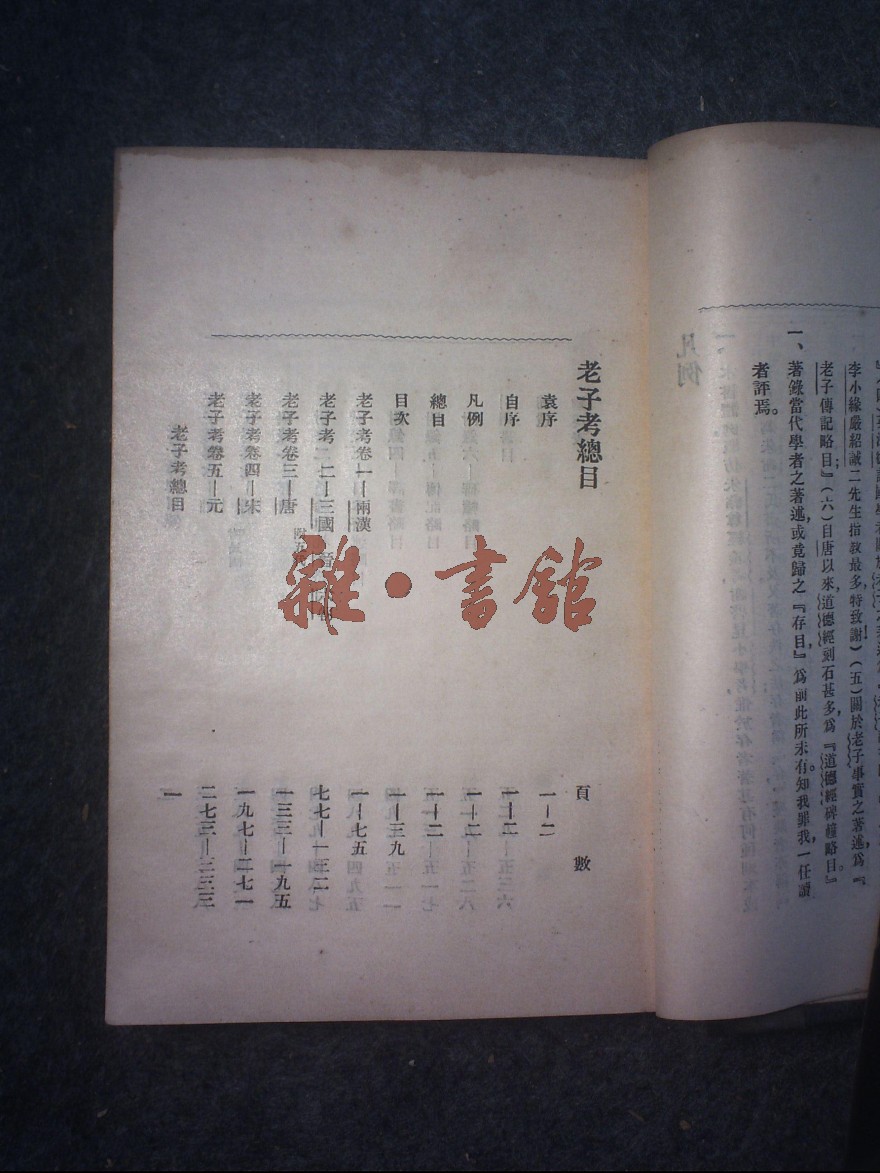 李小緣嚴紹誠二先生指敎最多，特致謝！）（五）關於老子事實之著述，爲『
老子傳記略目』；（六）自唐以來，道德經刻石甚多，爲『道德經碑幢略目』。
一、著錄當代學者之著述，或竟歸之『存目』，爲前此所未有。知我罪我，一任讀
者評焉。
老子考總目
頁數
袁序 一—二
自序 一—二
凡例 一—二
總目 一—二
目次 一—三九
老子考卷一—兩漢 一—七五
老子考 二—三國 晉 七七—一三二
老子考卷三—唐 一三三—一九五
老子考卷四—宋 一九七—二七一
老子考卷五—元 二七三—三三三
老子考總目 一
雜·書館